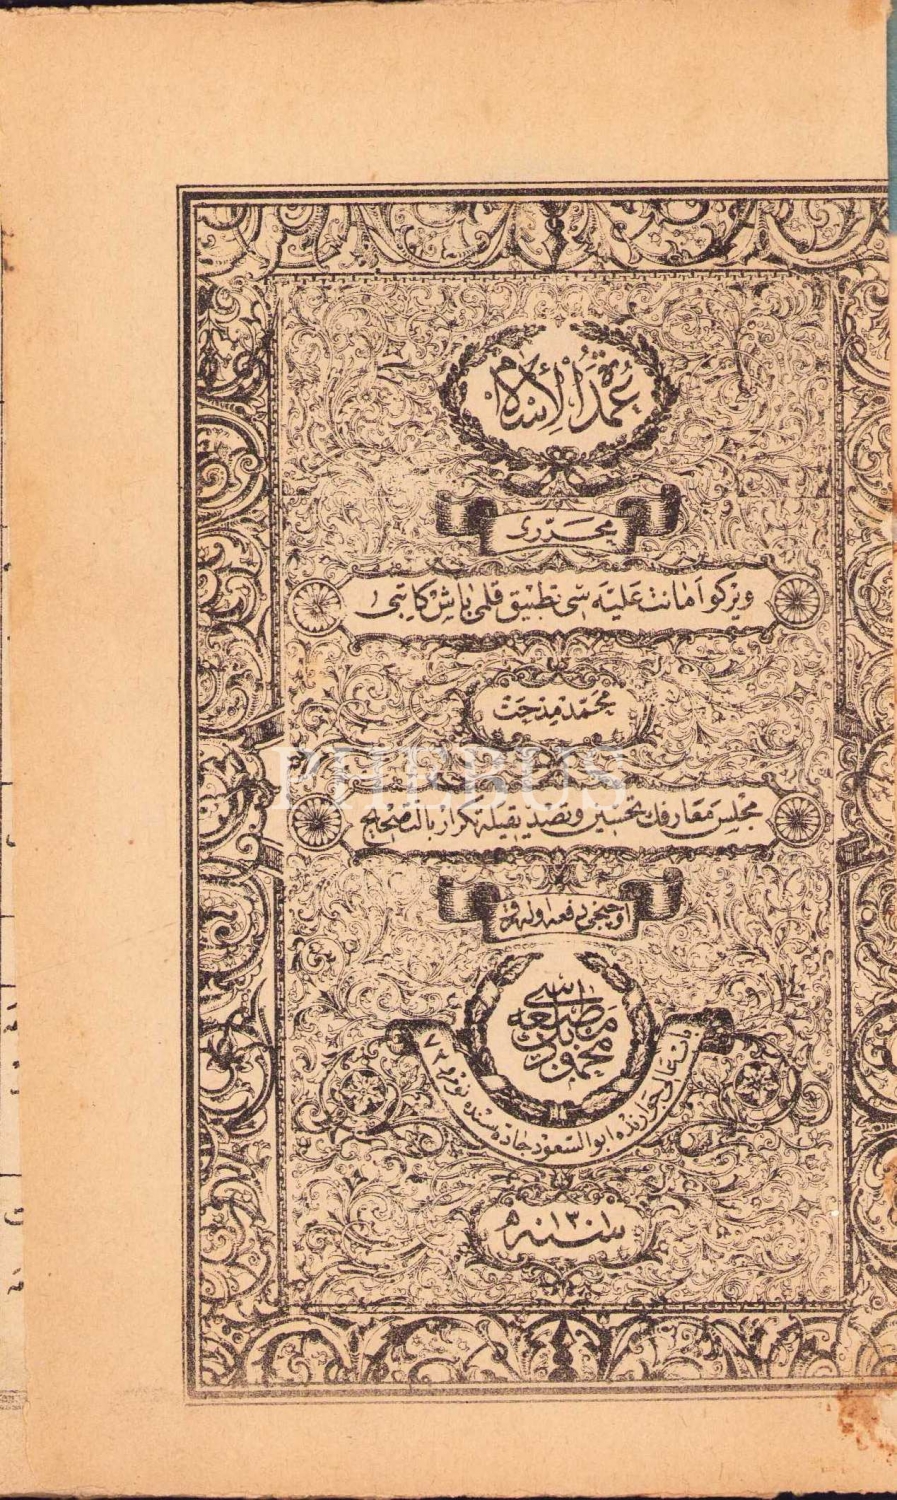 عُمْدَةُ الْإِسْلَام
محرری
ویرکو امانت علیه سی تطبیق قلمی باش کاتبی
محمد مدحت
PHEBUS
مجلس معارفك تحسین و تصدیقیله تکرار بالتصحیح
اوچنجی دفعه اوله رق
محمود بك مطبعه سی
باب عالی جوارنده ابوالسعود جاده سنده نومرو ٧٢
سنه ١٣٠١ ه